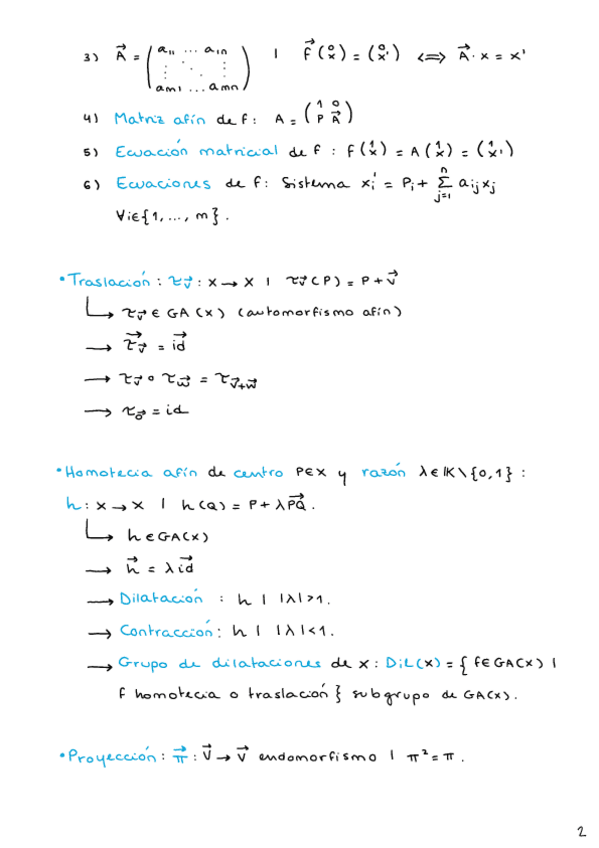 3) A⃗ = ( a₁₁ ... a₁ₙ ⋮ ⋱ ⋮ aₘ₁ ... aₘₙ ) | f⃗ (0 x) = (0 x') ⟺ A⃗ · x = x'
4) Matriz afín de f: A = (1 0 P A⃗)
5) Ecuación matricial de f : f (1 x) = A (1 x) = (1 x')
6) Ecuaciones de f: Sistema xᵢ' = Pᵢ + Σⁿⱼ₌₁ aᵢⱼxⱼ
∀i∈{1, ..., m}.
• Traslación : τ_v⃗ : X → X | τ_v⃗ (P) = P + v⃗
↳ τ_v⃗ ∈ GA (X) (automorfismo afín)
→ τ⃗_v⃗ = id⃗
→ τ_v⃗ ∘ τ_w⃗ = τ_v⃗+w⃗
→ τ_0⃗ = id
• Homotecia afín de centro P∈X y razón λ∈𝕂\{0,1} :
h : X → X | h(Q) = P + λPQ⃗ .
↳ h∈GA(X)
→ h⃗ = λid⃗
→ Dilatación : h | |λ|>1.
→ Contracción : h | |λ|<1.
→ Grupo de dilataciones de X : Dil(X) = { f∈GA(X) |
f homotecia o traslación } subgrupo de GA(X).
• Proyección : π⃗ : V⃗ → V⃗ endomorfismo | π² = π .
2